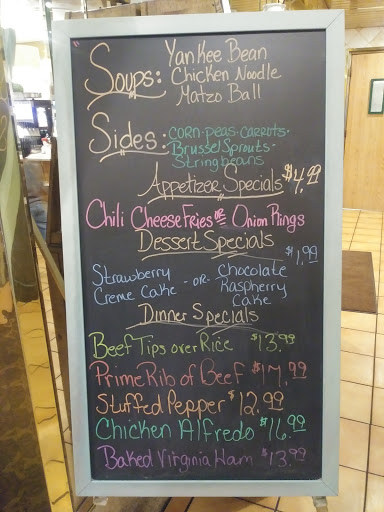 Soups: Yankee Bean
Chicken Noodle
Matzo Ball
Sides: CORN·PEAS·CARROTS·
Brussel Sprouts·
Stringbeans
Appetizer Specials $4.99
Chili Cheese Fries OR Onion Rings
Dessert Specials
$1.99
Strawberry Creme Cake - OR - Chocolate Raspherry Cake
Dinner Specials
Beef Tips over Rice $13.99
Prime Rib of Beef $17.99
Stuffed Pepper $12.99
Chicken Alfredo $16.99
Baked Virginia Ham $13.99